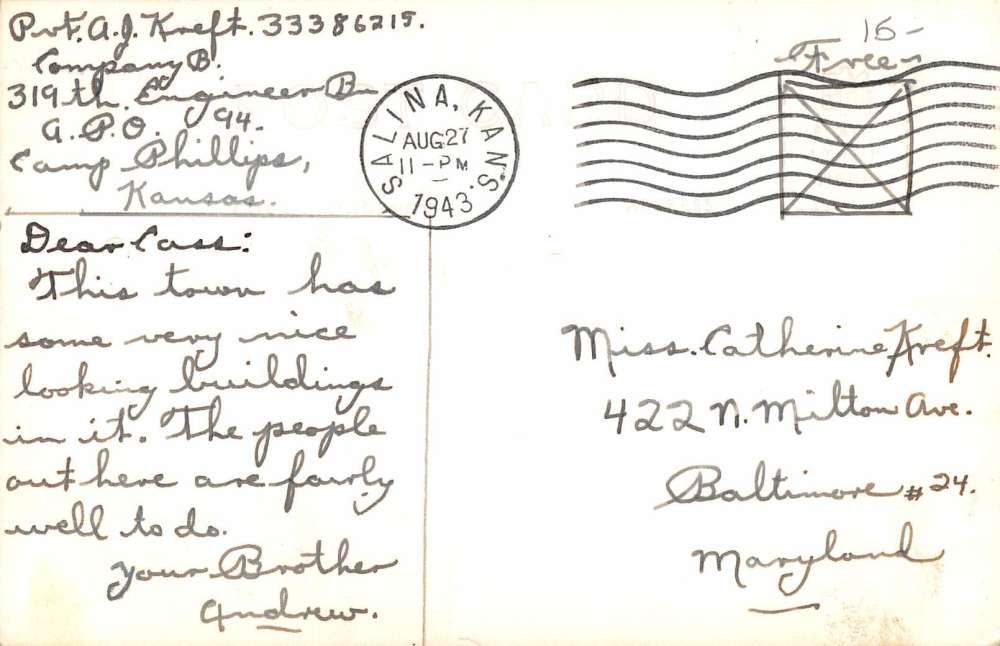 Pvt. A.J. Kreft. 33386215.
Company B.
319th. Engineer Bn
A.P.O. 94.
Camp Phillips,
Kansas.
SALINA, KANS.
AUG 27
11 - PM
1943
15-
Free
Dear Cass:
This town has
some very nice
looking buildings
in it. The people
out here are fairly
well to do.
Your Brother
Andrew.
Miss. Catherine Kreft.
422 N. Milton Ave.
Baltimore #24.
Maryland